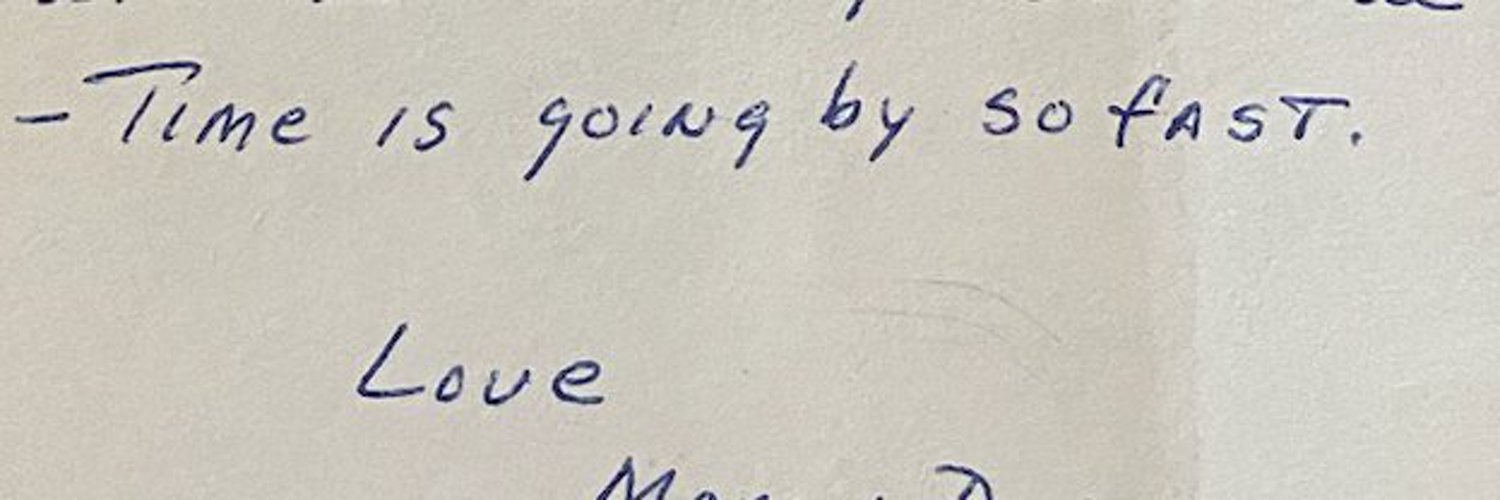 - Time is going by so fAST.
Love